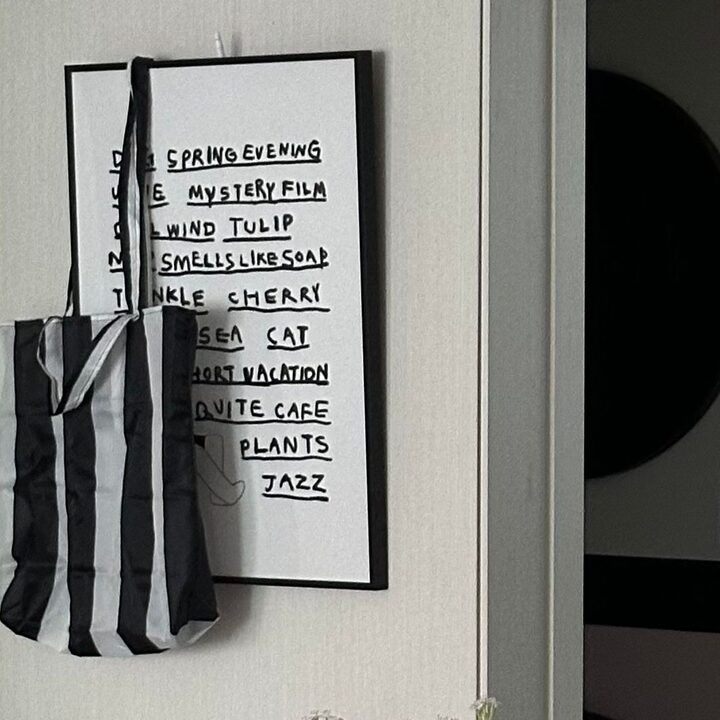 SPRING EVENING
MYSTERY FILM
WIND TULIP
SMELLS LIKE SOAP
CHERRY
SEA CAT
VACATION
QUITE CAFE
PLANTS
JAZZ